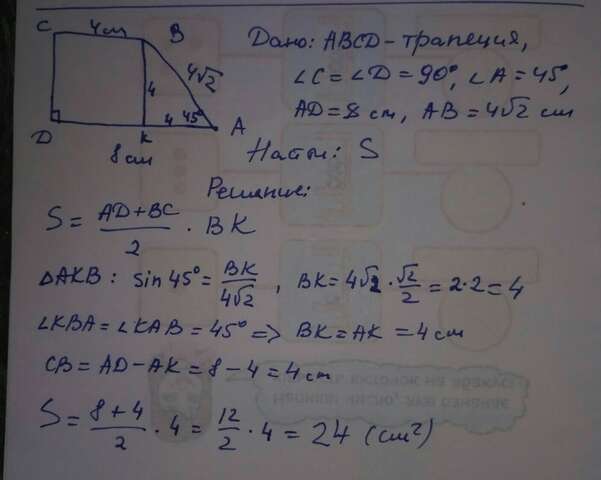 C 4см B
4√2
4
D K 4 45° A
8 см
Дано: ABCD - трапеция,
∠C = ∠D = 90°, ∠A = 45°,
AD = 8 см, AB = 4√2 см
Найти: S
Решение:
S = (AD + BC)/2 · BK
ΔAKB: sin 45° = BK/4√2, BK = 4√2 · √2/2 = 2·2 = 4
∠KBA = ∠KAB = 45° => BK = AK = 4 см
CB = AD - AK = 8 - 4 = 4 см
S = (8 + 4)/2 · 4 = 12/2 · 4 = 24 (см²)